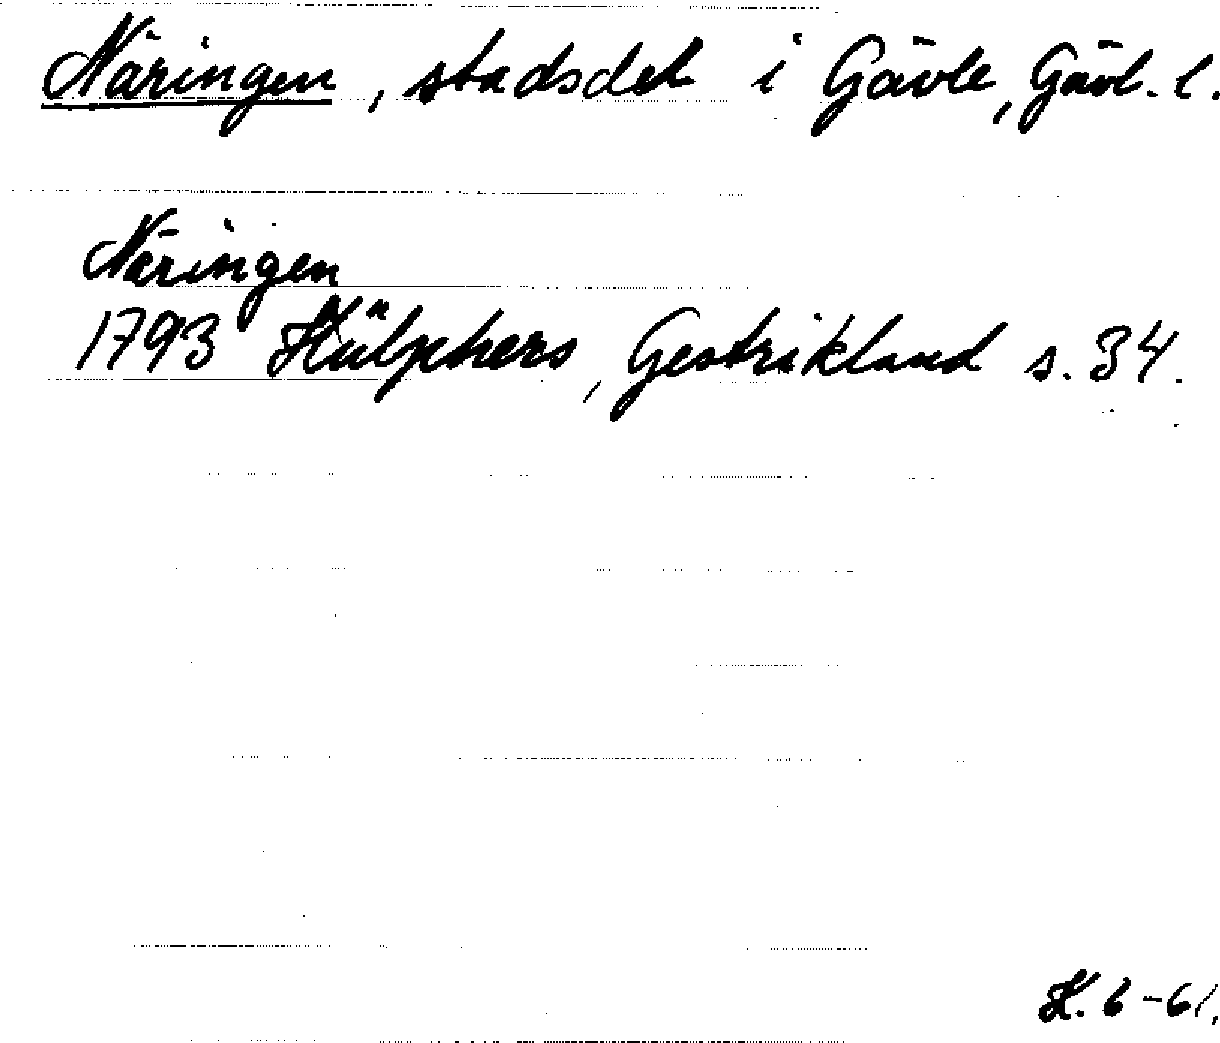 Näringen, stadsdel i Gävle, Gävl. l.
Näringen
1793 Hülphers, Gestrikland s. 34.
H. 6-61.